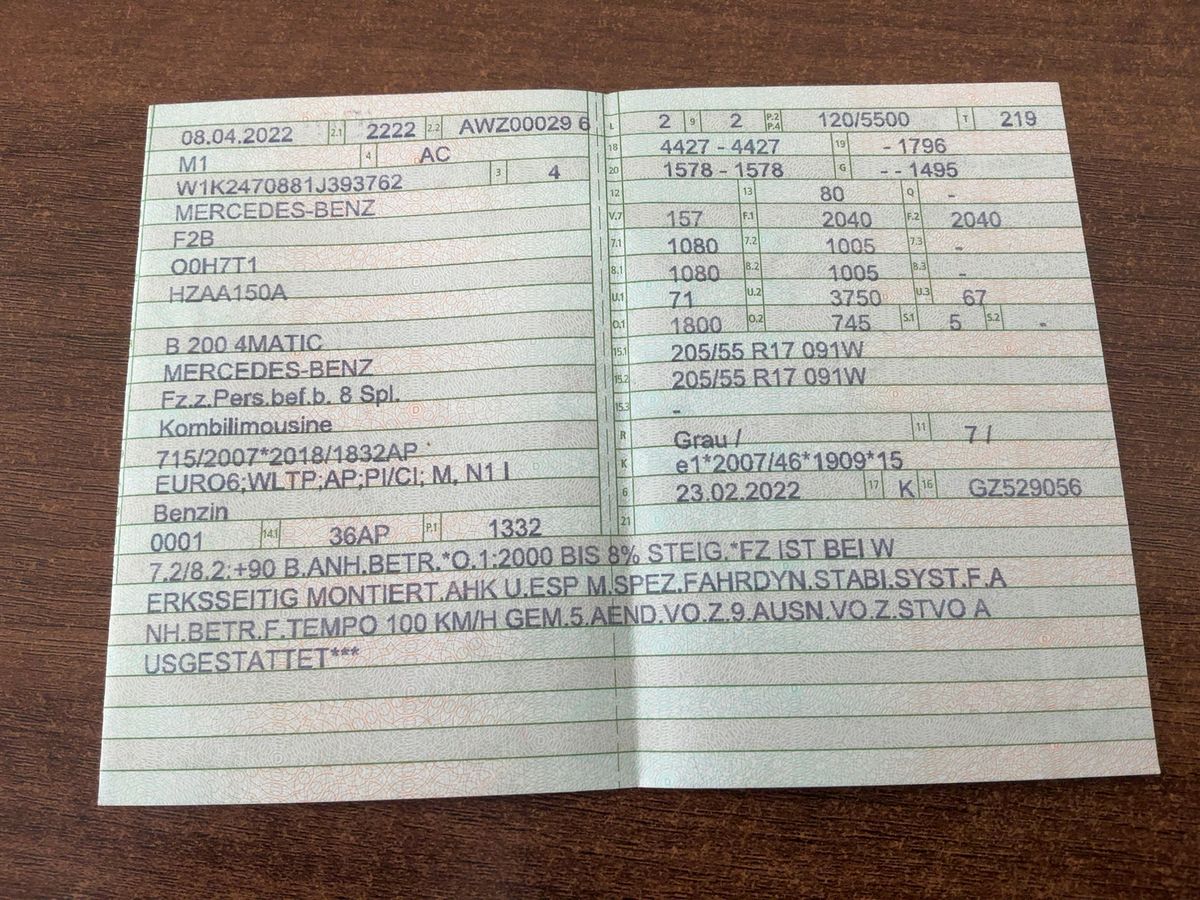 08.04.2022 2.1 2222 2.2 AWZ00029 6
M1 4 AC
W1K2470881J393762 3 4
MERCEDES-BENZ
F2B
O0H7T1
HZAA150A
B 200 4MATIC
MERCEDES-BENZ
Fz.z.Pers.bef.b. 8 Spl.
Kombilimousine
715/2007*2018/1832AP
EURO6;WLTP;AP;PI/CI; M, N1 I
Benzin
0001 14.1 36AP P.1 1332
L 2 9 2 P.2 P.4 120/5500 T 219
18 4427 - 4427 19 - 1796
20 1578 - 1578 G - - 1495
12 13 80 Q -
V.7 157 F.1 2040 F.2 2040
7.1 1080 7.2 1005 7.3 -
8.1 1080 8.2 1005 8.3 -
U.1 71 U.2 3750 U.3 67
O.1 1800 O.2 745 S.1 5 S.2 -
15.1 205/55 R17 091W
15.2 205/55 R17 091W
15.3 -
R Grau / 11 7 /
K e1*2007/46*1909*15
6 23.02.2022 17 K 16 GZ529056
21
7.2/8.2:+90 B.ANH.BETR.*O.1:2000 BIS 8% STEIG.*FZ IST BEI W
ERKSSEITIG MONTIERT.AHK U.ESP M.SPEZ.FAHRDYN.STABI.SYST.F.A
NH.BETR.F.TEMPO 100 KM/H GEM.5.AEND.VO.Z.9.AUSN.VO.Z.STVO A
USGESTATTET***